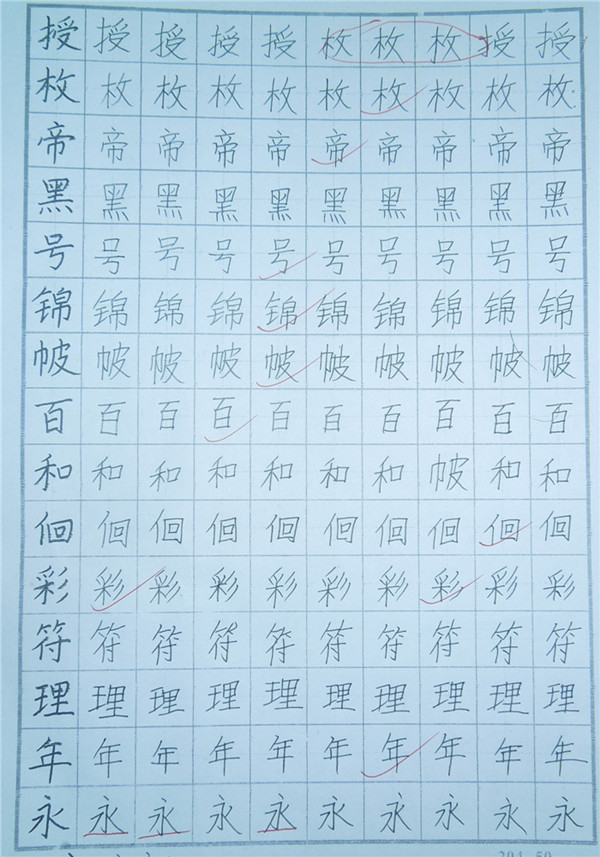 授授授授授枚枚枚授授
枚枚枚枚枚枚枚枚枚枚
帝帝帝帝帝帝帝帝帝帝
黑黑黑黑黑黑黑黑黑黑
号号号号号号号号号号
锦锦锦锦锦锦锦锦锦锦
帔帔帔帔帔帔帔帔帔帔
百百百百百百百百百百
和和和和和和和帔和和
佪佪佪佪佪佪佪佪佪佪
彩彩彩彩彩彩彩彩彩彩
符符符符符符符符符符
理理理理理理理理理理
年年年年年年年年年年
永永永永永永永永永永